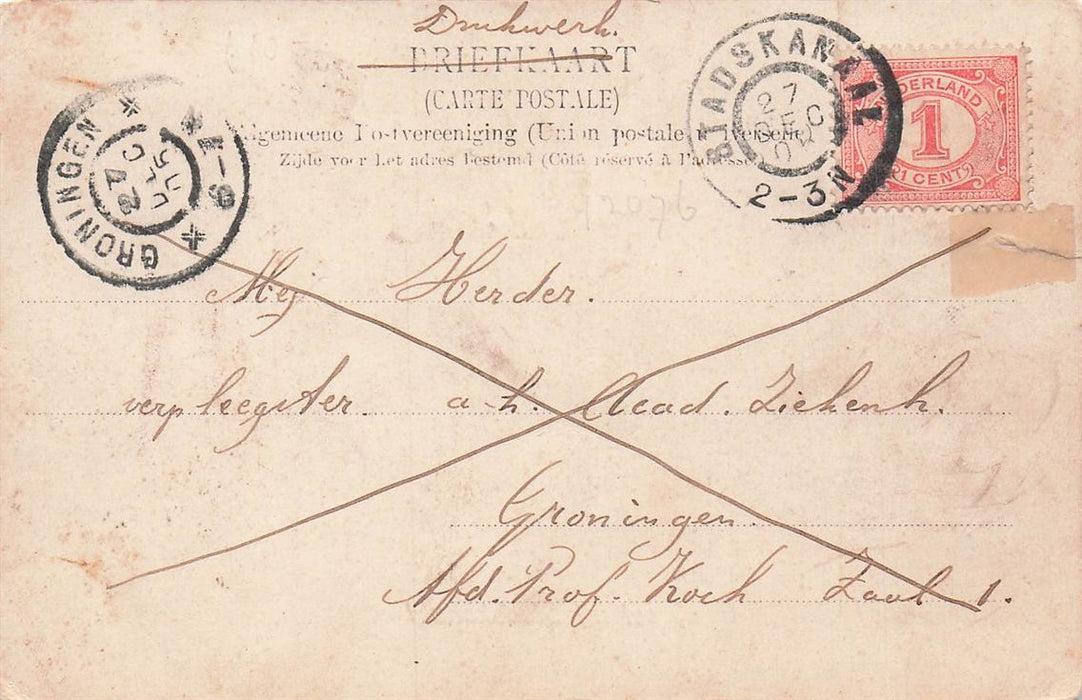 Drukwerk.
BRIEFKAART
(CARTE POSTALE)
Algemeene Postvereeniging (Union postale universelle)
Zijde voor het adres bestemd (Côté réservé à l'adresse)
STADSKANAAL
27
DEC
2-3N
NEDERLAND
1
1 CENT
GRONINGEN
12076
Mej Herder.
verpleegster. a-h. Acad. Ziekenh.
Groningen.
Afd. Prof. Koch Zaal 1.